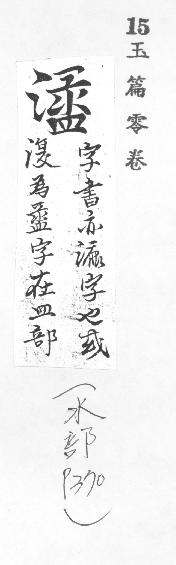 15玉篇零卷
字書亦漉字也或
復為盝字在皿部
(水部P370)